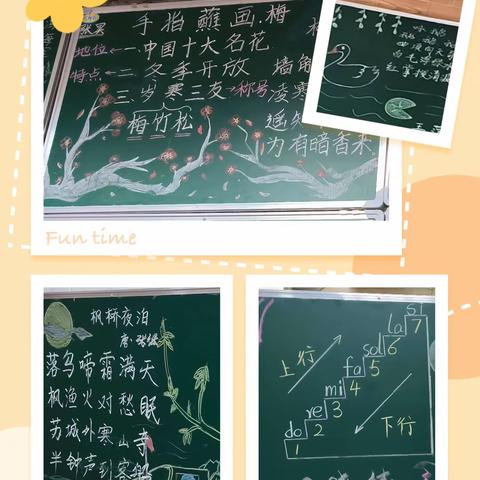 手指蘸画.梅
地位←一.中国十大名花
特点←二.冬季开放
三.岁寒三友→称号
梅竹松
墙角
凌寒
遥知
为有暗香来
红掌拨清
Fun time
枫桥夜泊
唐·张继
落乌啼霜满天
枫渔火对愁眠
苏城外寒山寺
半钟声到客船
上行
下行
si 7
la 6
sol 5
fa 4
mi 3
re 2
do 1